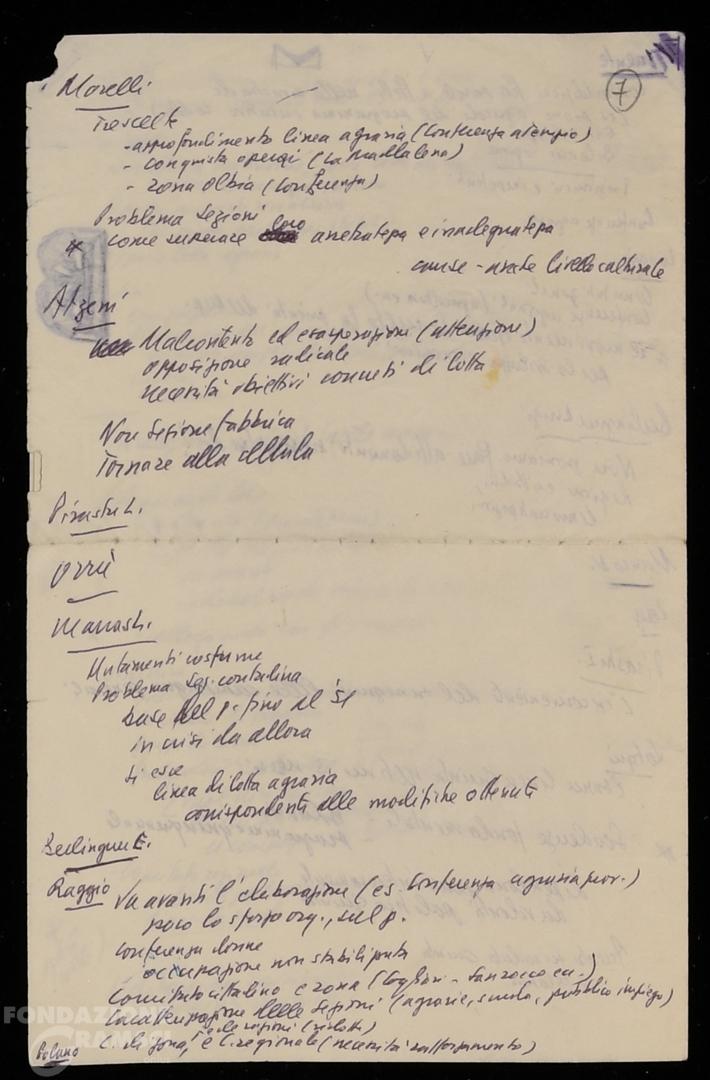 7
Morelli
Tre scelte
- approfondimento linea agraria (Conferenza a Tempio)
- conquista operai (La Maddalena)
- zona Olbia (Conferenza)
Problema sezioni
* come superare loro arretratezza e inadeguatezza
cause - anche livello culturale
Atzeni
Malcontento ed esasperazione (attenzione)
opposizione radicale
necessità obiettivi concreti di lotta
Non sezione fabbrica
Tornare alla cellula
Pirastu L.
Orrù
Marras L.
Mutamenti costume
Problema sez. contadina
base del p. fino al '51
in crisi da allora
si esce
linea di lotta agraria
corrispondente alle modifiche ottenute
Berlinguer E.
Raggio
Va avanti l'elaborazione (es. Conferenza agraria prov.)
poco lo sforzo org., sul p.
conferenza donne
occupazione non stabilizzata
Comitato cittadino e zona (Cagliari -
delle sezioni (agrarie, scuola, pubblico impiego)
C. di zona, e C. regionale (necessità rafforzamento)
FONDAZIONE
GRAMSCI